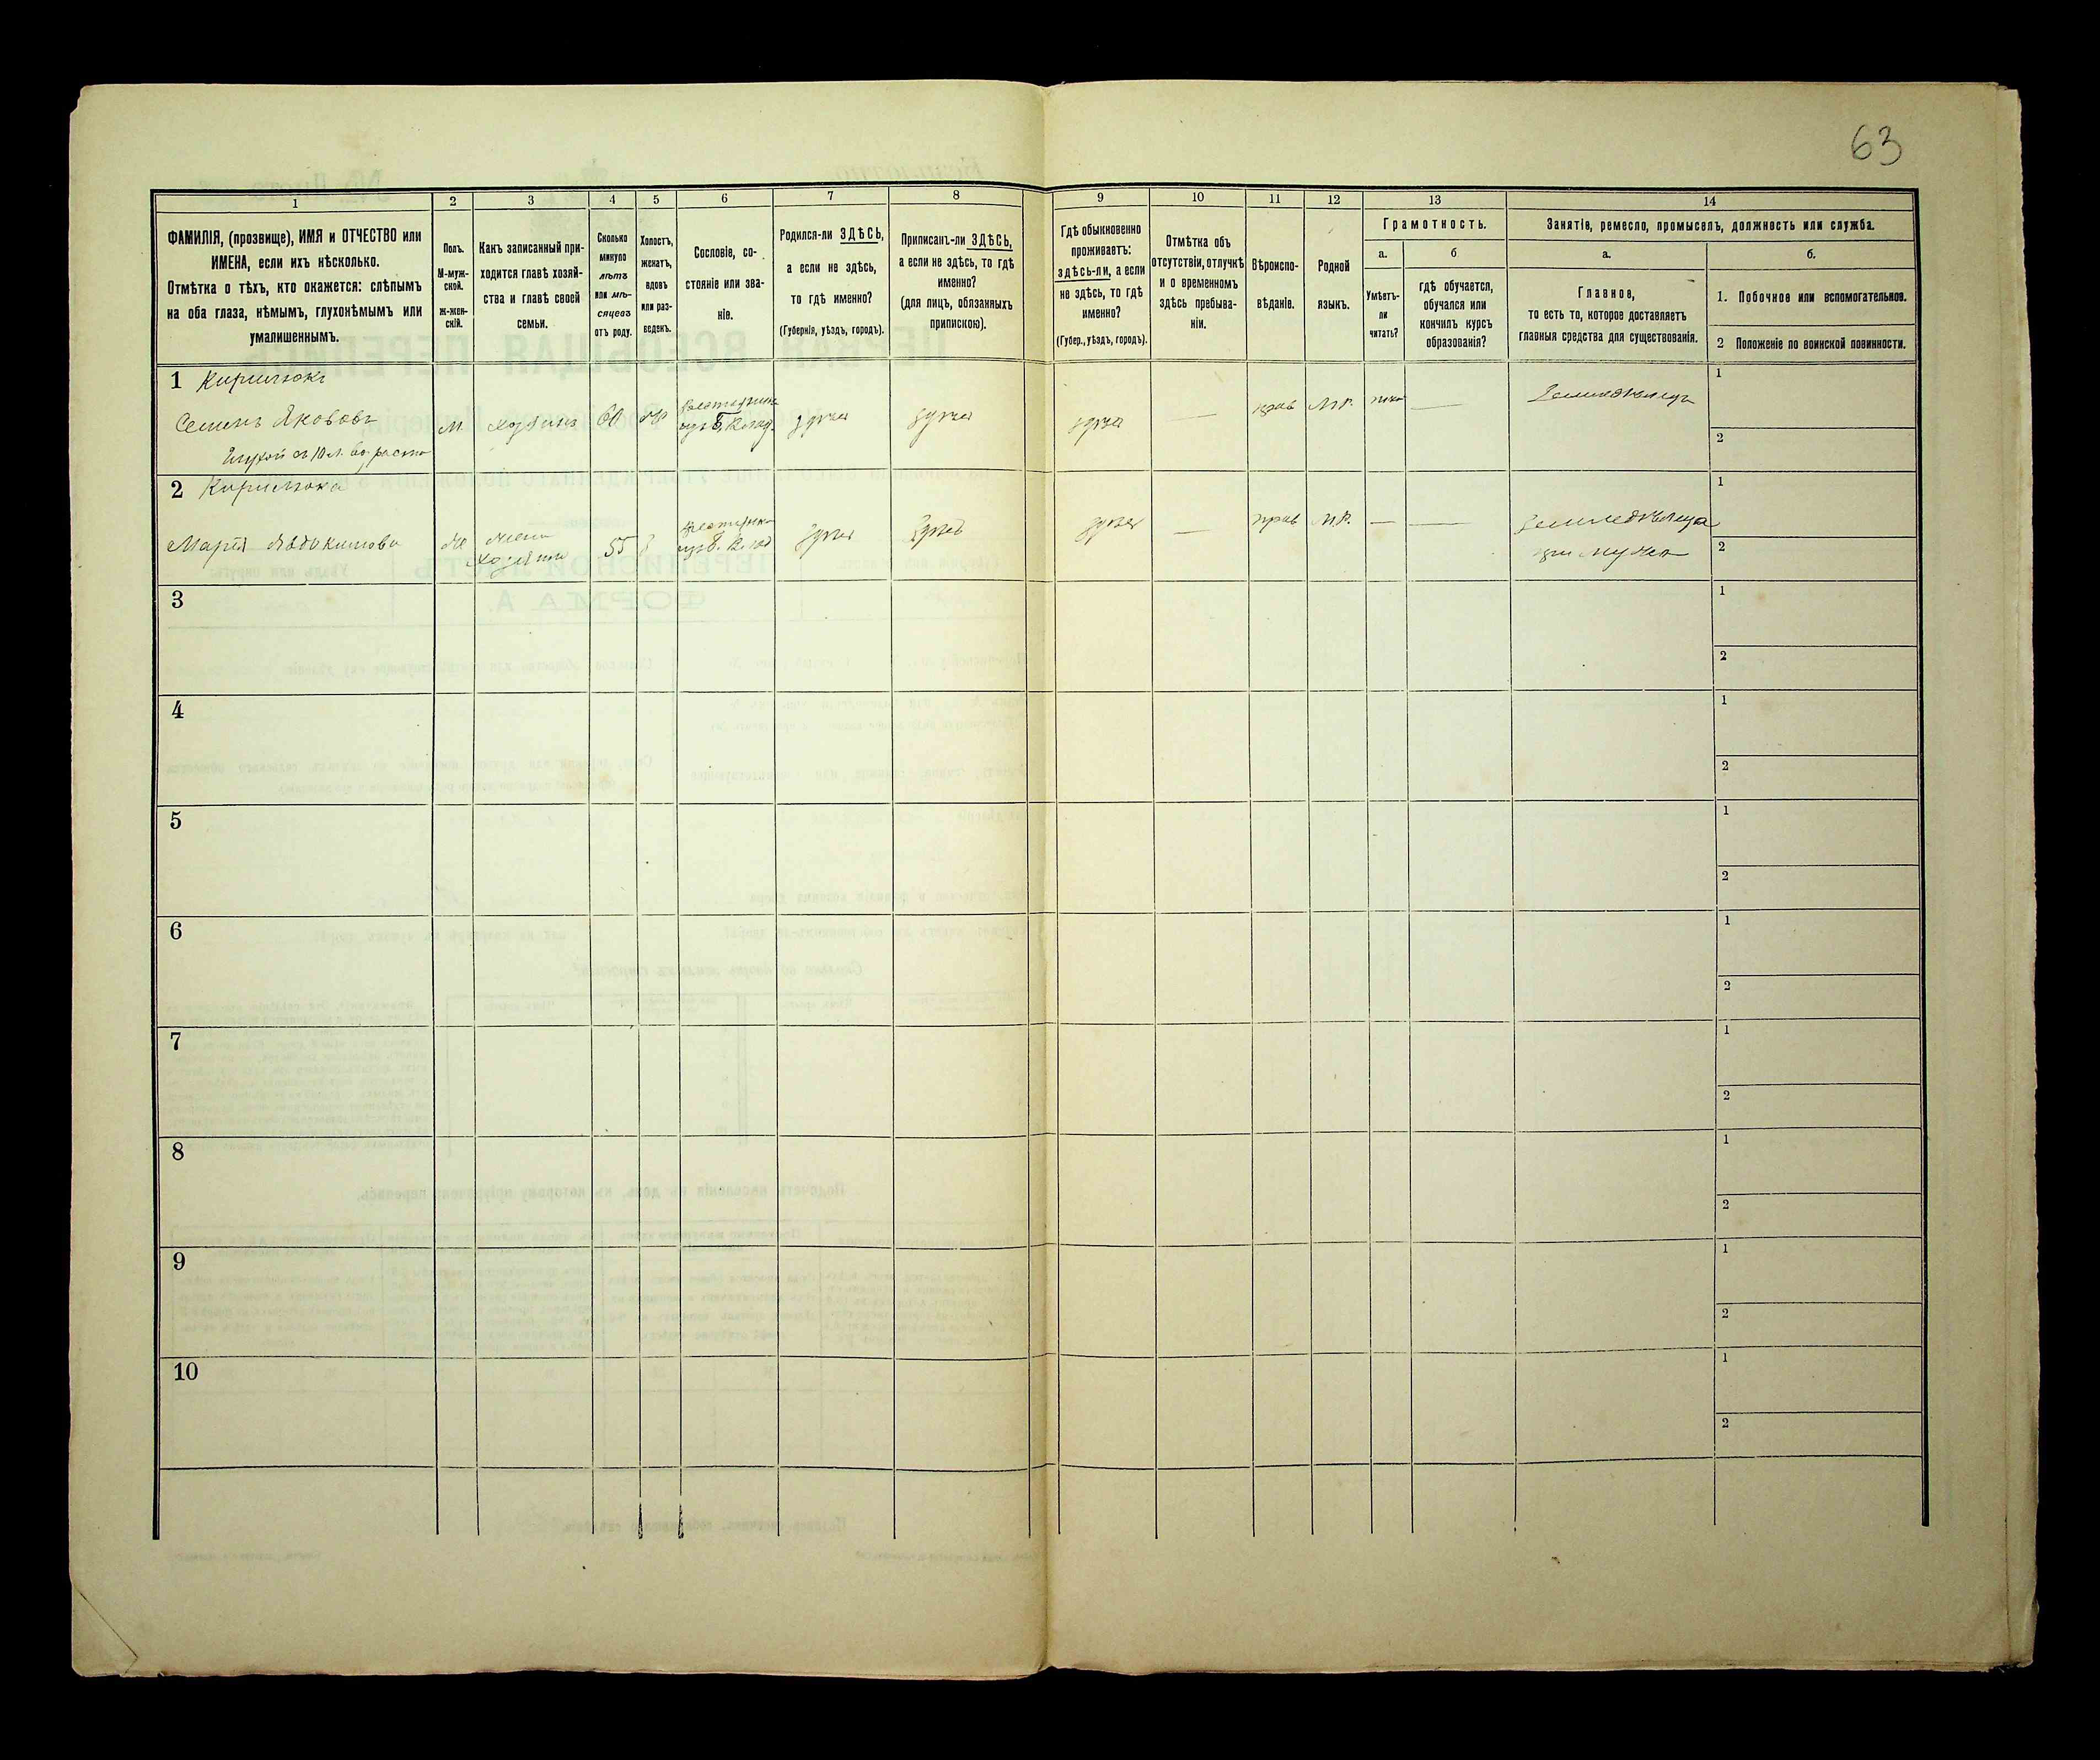 63
1
2
3
4
5
6
7
8
9
10
11
12
13
14
ФАМИЛІЯ, (прозвище), ИМЯ и ОТЧЕСТВО или
ИМЕНА, если ихъ нѣсколько.
Отмѣтка о тѣхъ, кто окажется: слѣпымъ
на оба глаза, нѣмымъ, глухонѣмымъ или
умалишеннымъ.
Полъ.
М-муж-
ской.
Ж-жен-
скій.
Какъ записанный при-
ходится главѣ хозяй-
ства и главѣ своей
семьи.
Сколько
минуло
лѣтъ
или мѣ-
сяцевъ
отъ роду.
Холостъ,
женатъ,
вдовъ
или раз-
веденъ.
Сословіе, со-
стояніе или зва-
ніе.
Родился-ли ЗДѢСЬ,
а если не здѣсь,
то гдѣ именно?
(Губернія, уѣздъ, городъ).
Приписанъ-ли ЗДѢСЬ,
а если не здѣсь, то гдѣ
именно?
(для лицъ, обязанныхъ
припискою).
Гдѣ обыкновенно
проживаетъ:
здѣсь-ли, а если
не здѣсь, то гдѣ
именно?
(Губер., уѣздъ, городъ).
Отмѣтка объ
отсутствіи, отлучкѣ
и о временномъ
здѣсь пребыва-
ніи.
Вѣроиспо-
вѣданіе.
Родной
языкъ.
Грамотность.
а.
Умѣетъ-
ли
читать?
б
гдѣ обучается,
обучался или
кончилъ курсъ
образованія?
Занятіе, ремесло, промыселъ, должность или служба.
а.
Главное,
то есть то, которое доставляетъ
главныя средства для существованія.
б.
1. Побочное или вспомогательное.
2 Положеніе по воинской повинности.
1 Кирилюкъ
Семенъ Якововъ
Глухой съ 10 л. возраста
м
хозяинъ
60
здѣсь
здѣсь
здѣсь
прав
М.Р.
Земледѣлецъ
1
2
2 Кирилюкъ
Марія
жена
хозяина
55
здѣсь
здѣсь
здѣсь
прав
М.Р.
Земледѣлица
при мужѣ
1
2
3
1
2
4
1
2
5
1
2
6
1
2
7
1
2
8
1
2
9
1
2
10
1
2